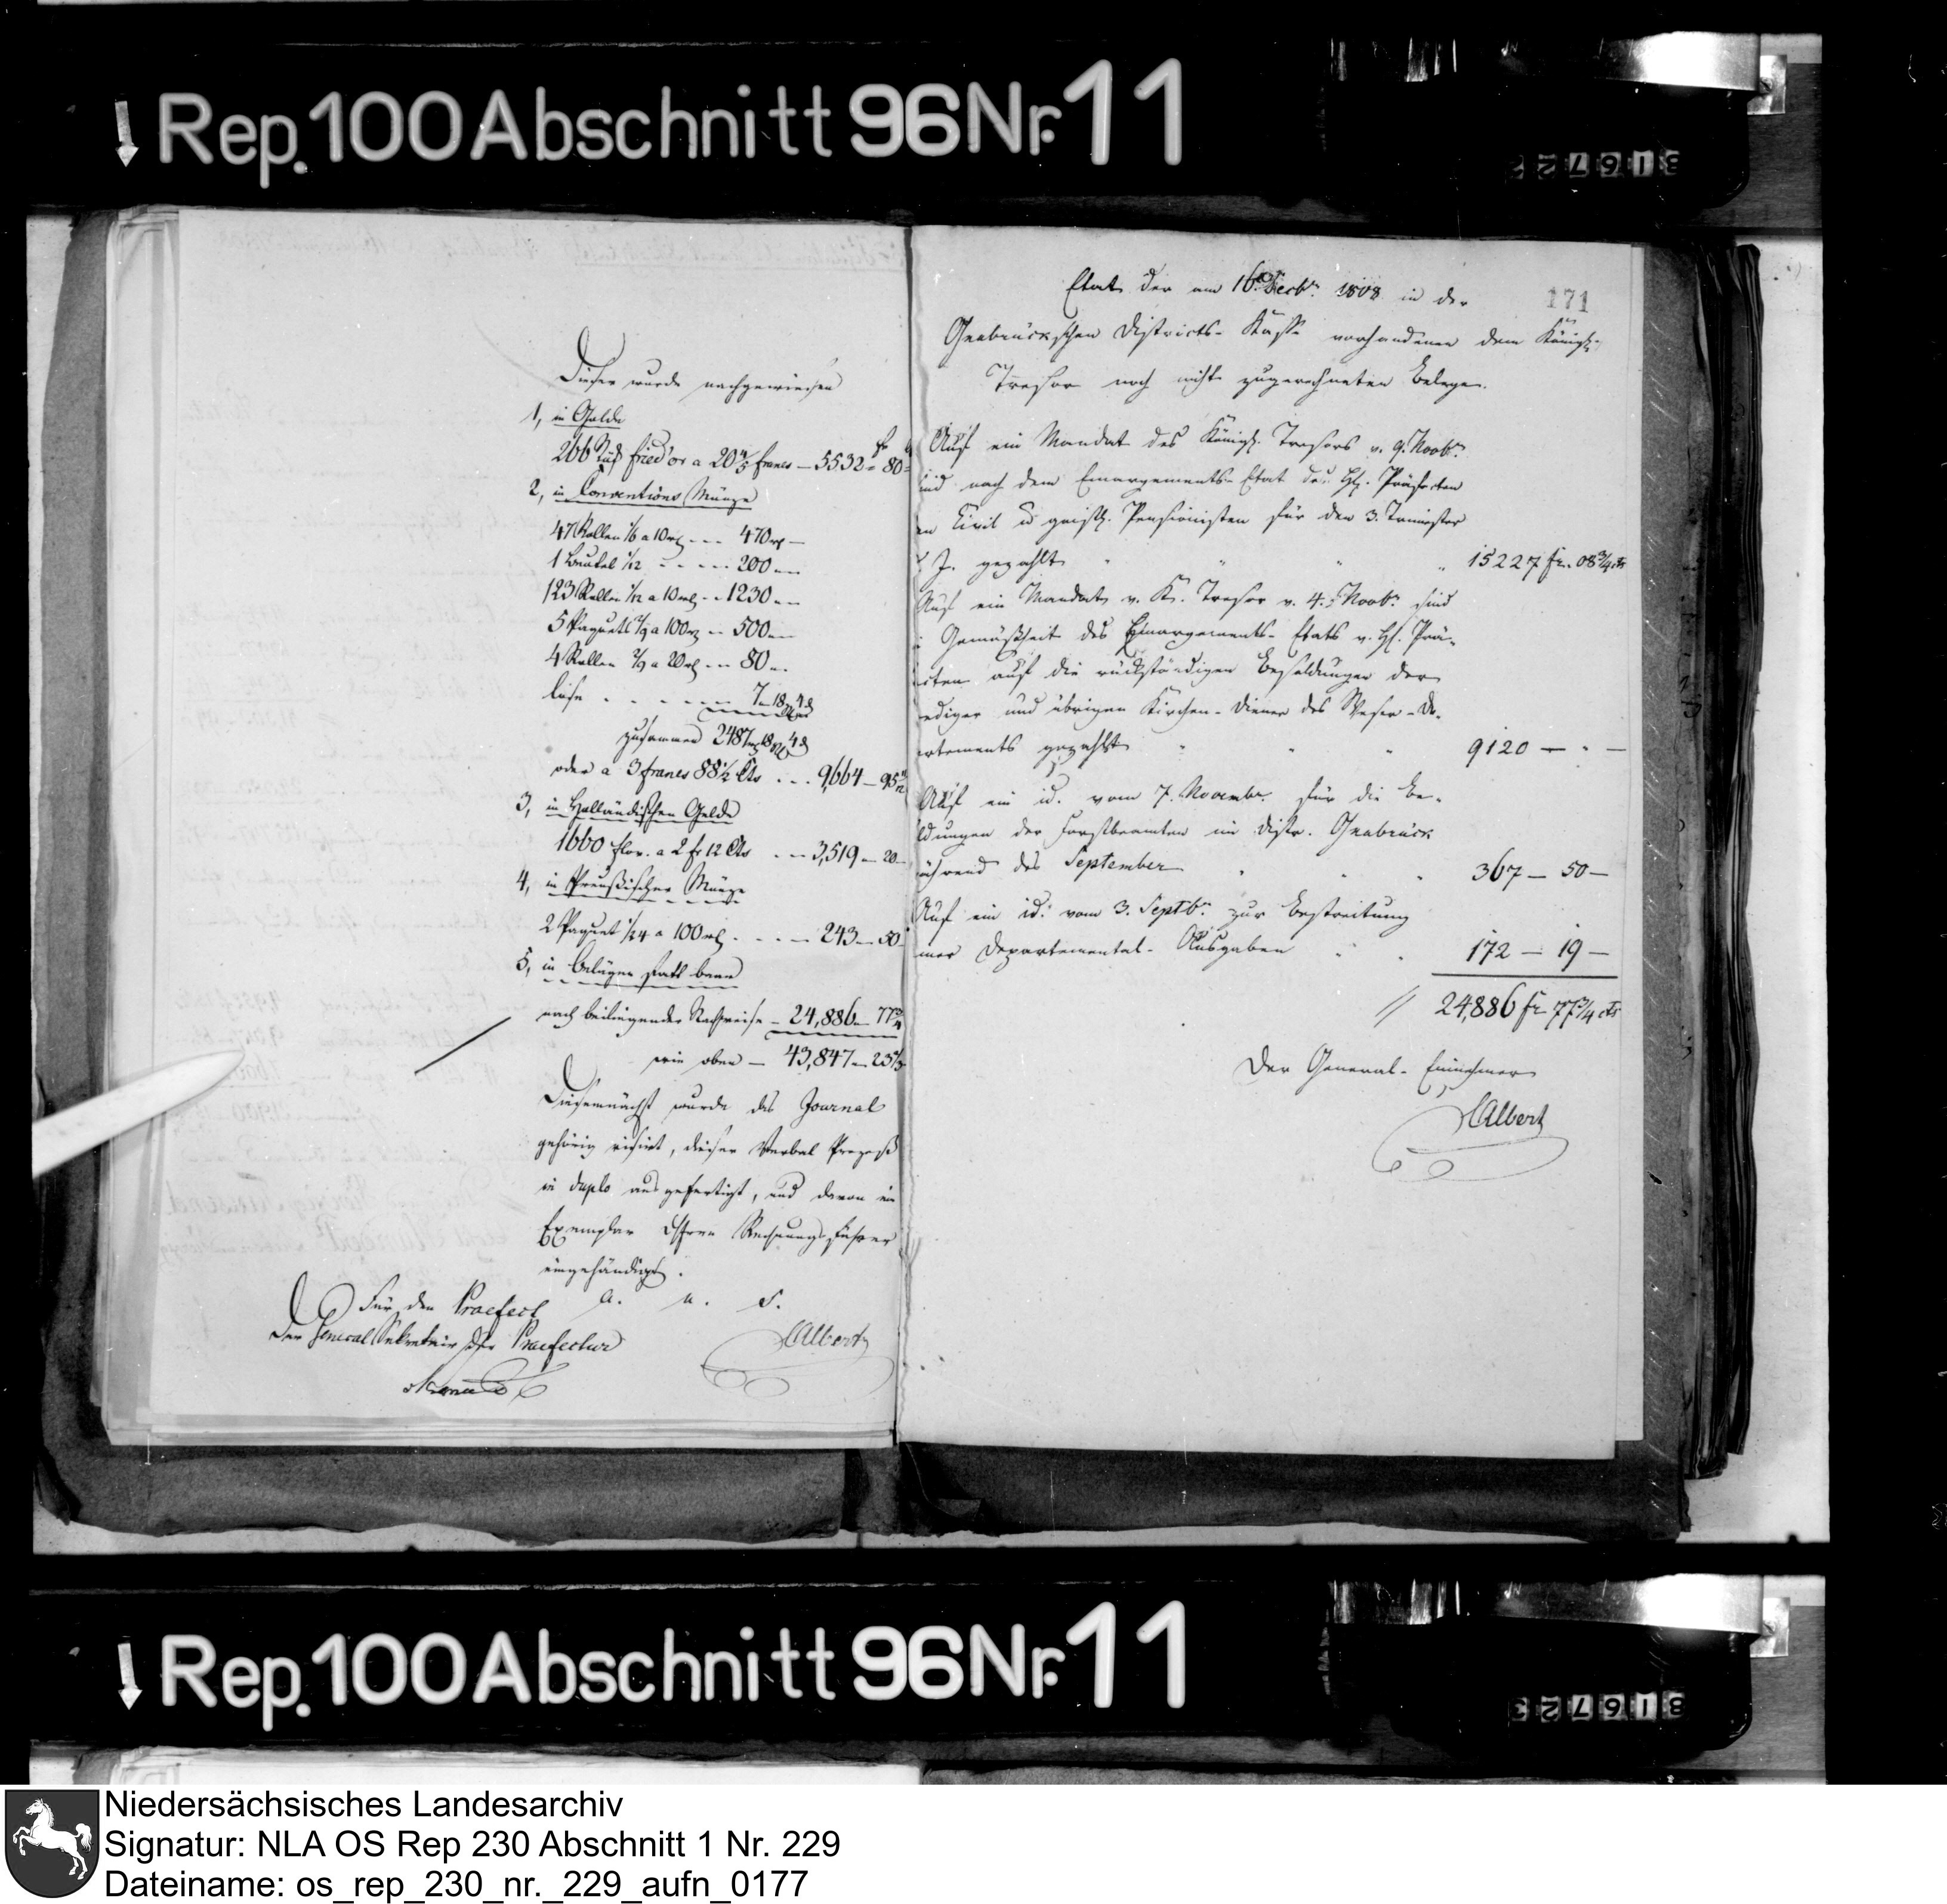 Rep. 100 Abschnitt 96 Nr. 11
316722
Dieser wurde nachgewiesen
1, in Golde
266 Stück Fried'or a 20 4/5 francs — 5532 " 80
2, in Conventions Münze
47 Rollen 1/6 a 10 rh --- 470 rh —
1 Beutel 1/12 ----- 200 —
123 Rollen 1/12 a 10 rh -- 1230 —
5 Paquets a 100 rh -- 500 —
4 Rollen a 20 rh --- 80 —
lose 7 — 18
zusammen 2487 rh 18
oder a 3 francs 88 1/2 Cts --- 9,664 — 95
3, in Holländischen Gelde
1660 flor. a 2 fr 12 Cts -- 3,519 — 20
4, in Preußischer Münze
2 Paquet 1/24 a 100 rh ---- 243 — 50
5, in Belägen statt baar
nach beiliegender Nachweise — 24,886 — 77 3/4
wie oben — 43,847 — 23
Diesemnächst wurde das Journal
gehörig visirt, dieser Verbal Prozeß
in duplo ausgefertigt, und davon ein
Exemplar Rechnungsführer
eingehändigt.
a. u. s.
Für den Praefect
Der General Sekretair der Praefectur
Albert
171
Etat der am 16 Decbr. 1808 in der
Osnabrückschen Districts-Kasse vorhandenen dem Königl.
Tresor noch nicht zugerechneten Belege.
Auf ein Mandat des Königl. Tresors v. 9. Novbr.
sind nach dem Emargements-Etat des H. Präfecten
en Civil u geistl. Pensionisten für den 3. Trimester
J. gezahlt " " " " 15227 fr. 08 3/4 cts
Auf ein Mandat v. K. Tresor v. 4. Novbr. sind
Gemäßheit des Emargements-Etats v. H. Prä-
cten auf die rückständigen Besoldungen der
ediger und übrigen Kirchen-Diener des Weser-De-
rtements gezahlt " " " 9120 — " —
Auf ein id. vom 7. Novembr. für die Be-
ldungen der Forstbeamten im Distr. Osnabrück
ährend des September " " " 367 — 50 —
Auf ein id. vom 3. Septbr. zur Bestreitung
mer Departemental-Ausgaben " " 172 — 19 —
24,886 fr 77 3/4 cts
Der General-Einnehmer
Albert
Rep. 100 Abschnitt 96 Nr. 11
316723
Niedersächsisches Landesarchiv
Signatur: NLA OS Rep 230 Abschnitt 1 Nr. 229
Dateiname: os_rep_230_nr._229_aufn_0177